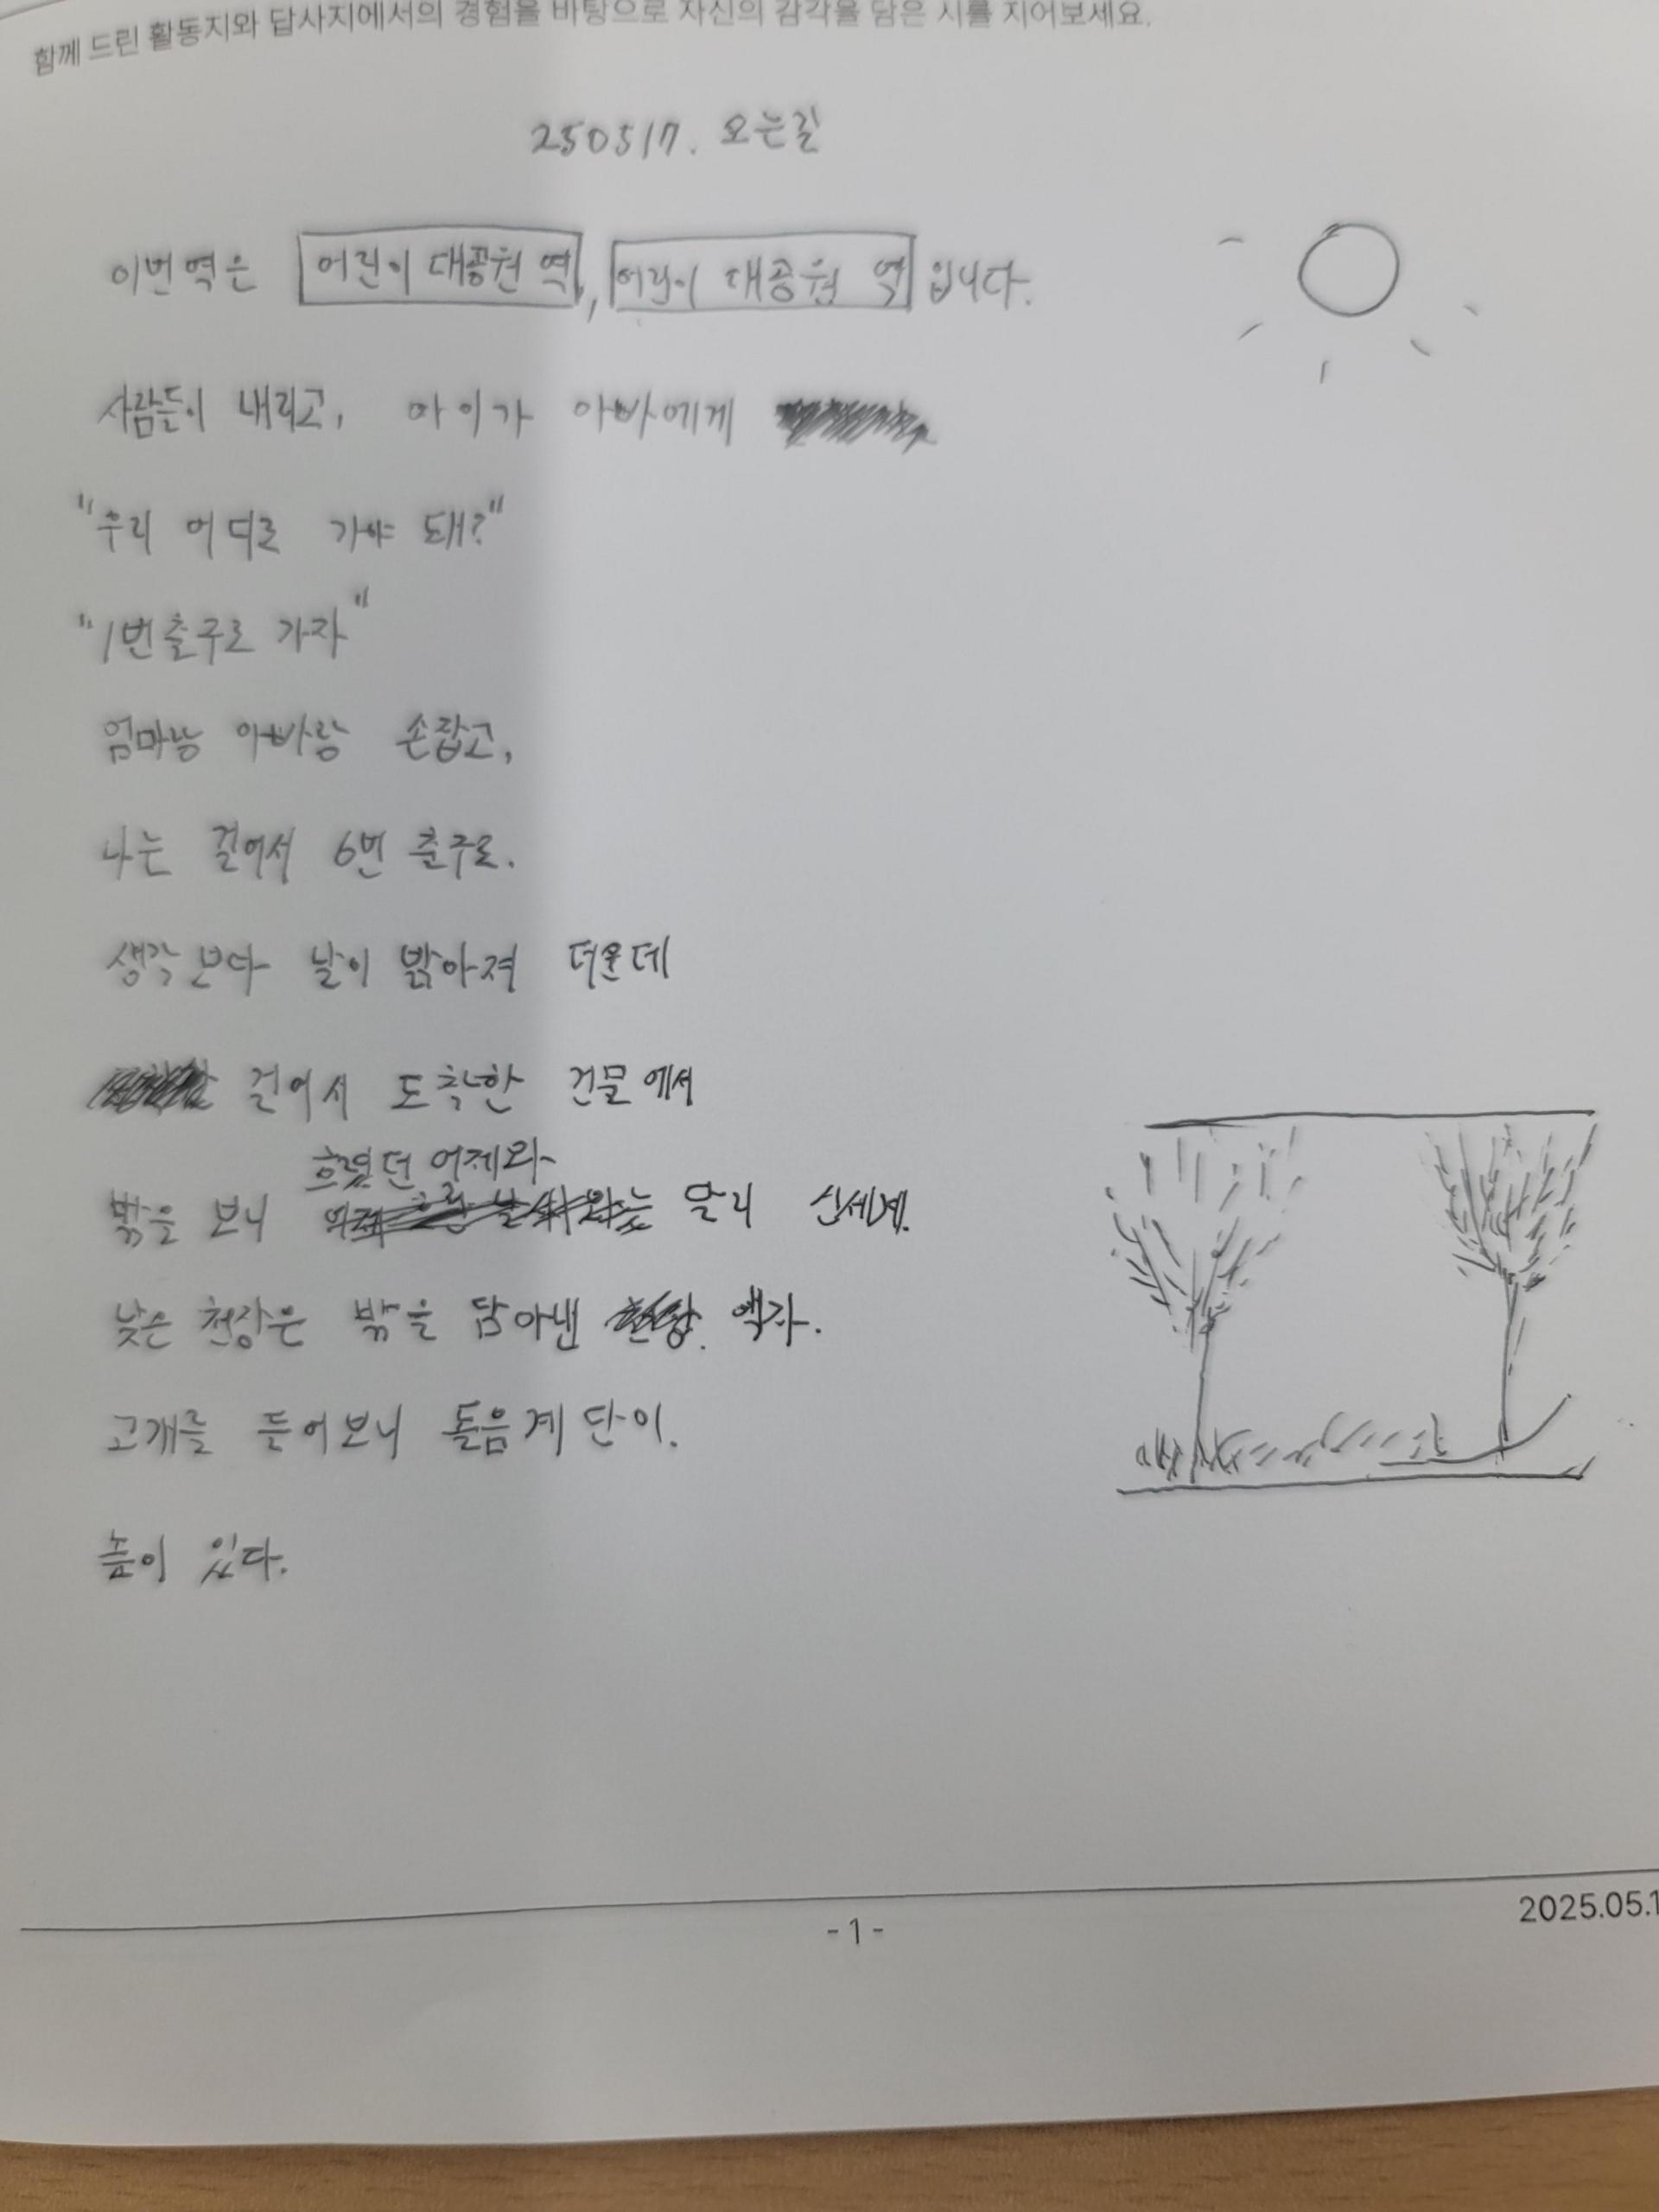 함께 드린 활동지와 답사지에서의 경험을 바탕으로 자신의 감각을 담은 시를 지어보세요.
250517. 오는길
이번역은 어린이 대공원 역, 어린이 대공원 역 입니다.
사람들이 내리고, 아이가 아빠에게
"우리 어디로 가야 돼?"
"1번출구로 가자"
엄마랑 아빠랑 손잡고,
나는 걸어서 6번 출구로.
생각보다 날이 밝아져 더운데
걸어서 도착한 건물에서
흐렸던 어제와
밖을 보니 달리 신세계.
낮은 천장은 밖을 담아낸 액자.
고개를 들어보니 돌음계단이.
높이 있다.
- 1 -
2025.05.1